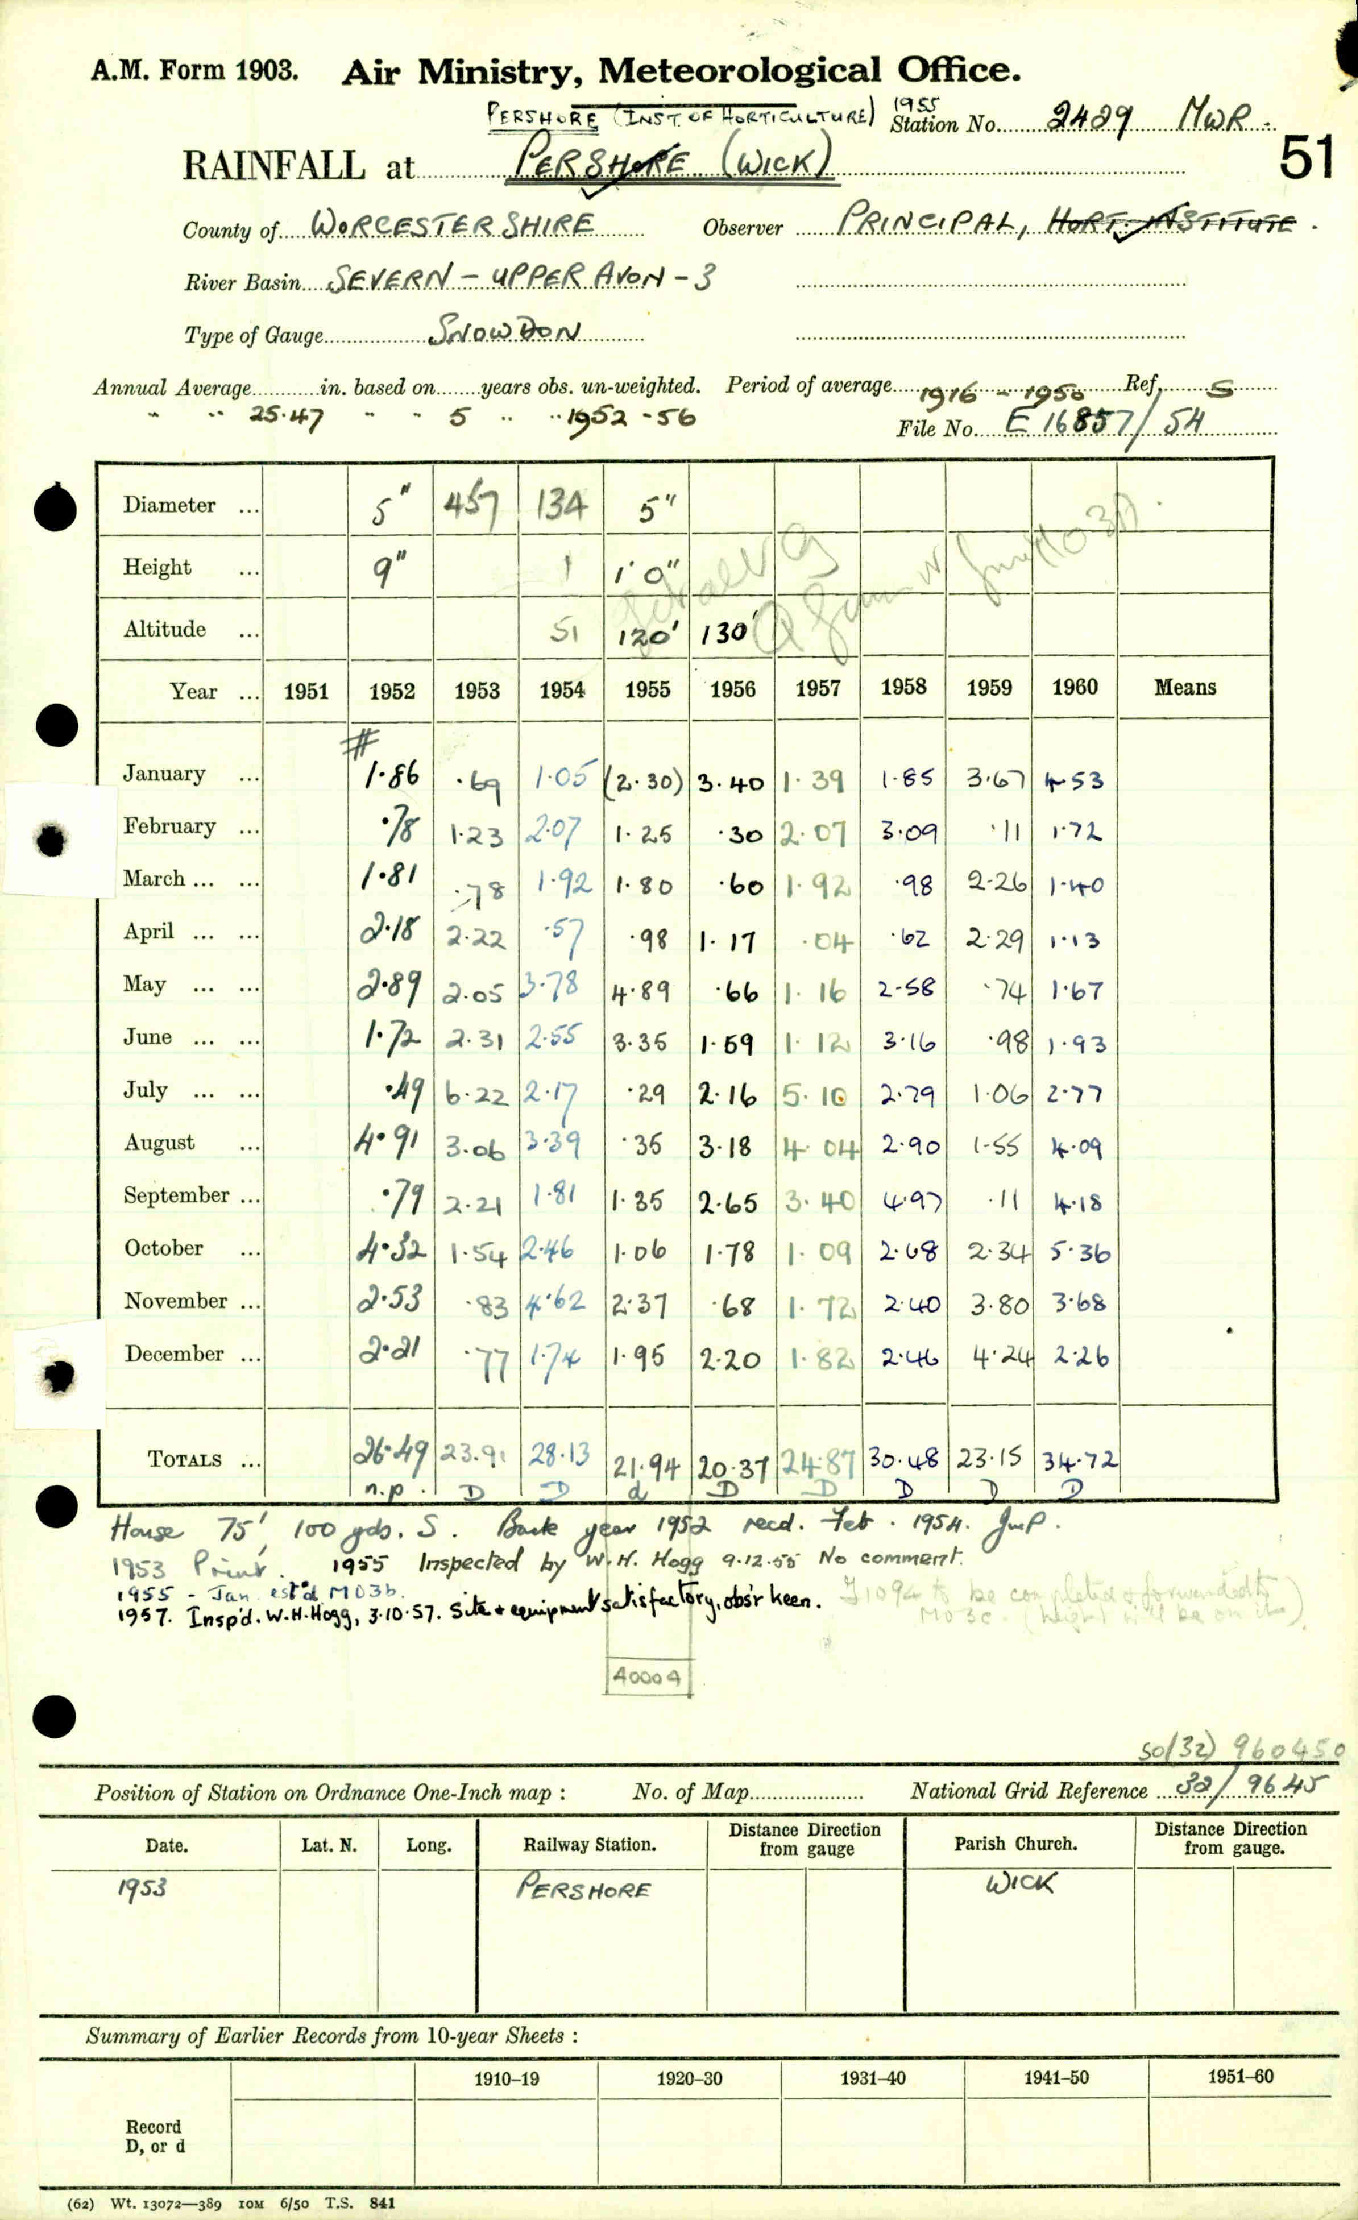 A.M. Form 1903. Air Ministry, Meteorological Office.
PERSHORE (INST. OF HORTICULTURE) 1955 Station No. 2429 MWR
51
RAINFALL at PERSHORE (WICK)
County of WORCESTERSHIRE Observer PRINCIPAL, HORT. INSTITUTE.
River Basin SEVERN - UPPER AVON - 3
Type of Gauge SNOWDON
Annual Average in. based on years obs. un-weighted. Period of average 1916 - 1950 Ref. S
" " 25.47 " " 5 " " 1952 - 56 File No. E 16857/54
Diameter ... 5" 457 134 5"
Height ... 9" 1 1' 0"
Altitude ... 51 120' 130'
Year ... 1951 1952 1953 1954 1955 1956 1957 1958 1959 1960 Means
#
January ... 1.86 .69 1.05 (2.30) 3.40 1.39 1.85 3.67 4.53
February ... .78 1.23 2.07 1.25 .30 2.07 3.09 .11 1.72
March ... ... 1.81 .78 1.92 1.80 .60 1.92 .98 2.26 1.40
April ... ... 2.18 2.22 .57 .98 1.17 .04 .62 2.29 1.13
May ... ... 2.89 2.05 3.78 4.89 .66 1.16 2.58 .74 1.67
June ... ... 1.72 2.31 2.55 3.35 1.59 1.12 3.16 .98 1.93
July ... ... .49 6.22 2.17 .29 2.16 5.10 2.79 1.06 2.77
August ... 4.91 3.06 3.39 .35 3.18 4.04 2.90 1.55 4.09
September ... .79 2.21 1.81 1.35 2.65 3.40 4.97 .11 4.18
October ... 4.32 1.54 2.46 1.06 1.78 1.09 2.68 2.34 5.36
November ... 2.53 .83 4.62 2.37 .68 1.72 2.40 3.80 3.68
December ... 2.21 .77 1.74 1.95 2.20 1.82 2.46 4.24 2.26
TOTALS ... 26.49 23.91 28.13 21.94 20.37 24.87 30.48 23.15 34.72
n.p. D D d D D D D D
House 75', 100 yds. S. Back year 1952 recd. Feb. 1954. JMP.
1953 Print. 1955 Inspected by W.H. Hogg 9.12.55 No comment.
1955 - Jan est'd M03b.
1957. Insp'd. W.H. Hogg, 3.10.57. Site + equipment satisfactory, obs'r keen. F1094 to be completed & forwarded to
M03c. (height will be on it)
4000A
SO(32) 960450
Position of Station on Ordnance One-Inch map : No. of Map National Grid Reference 32/9645
Date. Lat. N. Long. Railway Station. Distance Direction from gauge Parish Church. Distance Direction from gauge.
1953 PERSHORE WICK
Summary of Earlier Records from 10-year Sheets :
1910–19 1920–30 1931–40 1941–50 1951–60
Record
D, or d
(62) Wt. 13072—389 10M 6/50 T.S. 841